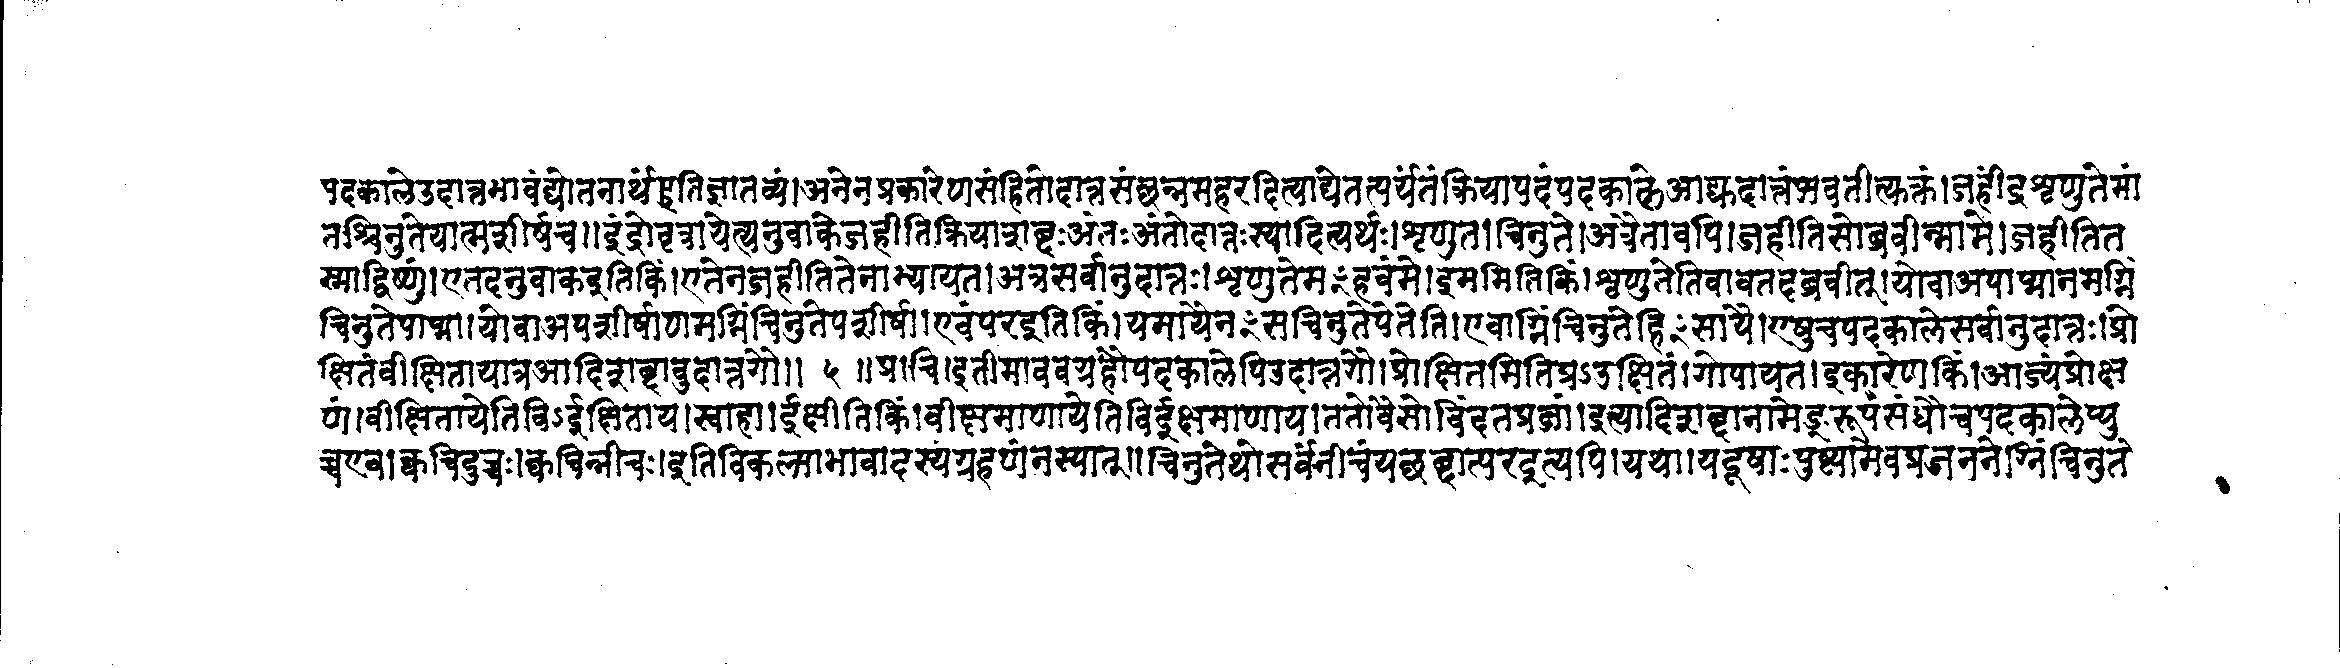 पदकालेउदात्तभावंद्योतनार्थंइतिज्ञातव्यं।अनेनप्रकारेणसंहितोदात्तसंछन्नमहरदित्याद्येतत्पर्यंतंक्रियापदंपदकालेआद्युदात्तंभवतीत्युक्तं।जहींद्रशृणुतेमां
नश्चिनुतेयात्मशीर्षच॥इंद्रोवृत्रायेत्यनुवाकेजहीतिक्रियाशब्दःअंतःअंतोदात्तःस्यादित्यर्थः।शृणुत।चिनुते।अत्रैतावपि।जहीतिसोब्रवीन्मामे।जहीतित
स्माद्विष्णुं।एतदनुवाकइतिकिं।एतेनजहीतितेनाभ्यायत।अत्रसर्वानुदात्तः।शृणुतेमꣳहवंमे।इममितिकिं।शृणुतेतिवावतदब्रवीत्।योवाअपात्मानमग्निं
चिनुतेपात्मा।योवाअपशीर्षाणमग्निंचिनुतेपशीर्षा।एवंपरइतिकिं।यमायैनꣳसचिनुतेपेतेति।एवाग्निंचिनुतेहिꣳसायै।एषुचपदकालेसर्वानुदात्तः।प्रो
क्षितंवीक्षितायात्रआदिशब्दावुदात्तगौ॥५॥प्राचि।इतीमाववयहौपदकालेपिउदात्तगौ।प्रोक्षितमितिप्रऽउक्षितं।गोपायत।इकारेणकिं।आज्यंप्रोक्ष
णं।वीक्षितायेतिविऽईक्षिताय।स्वाहा।ईक्षीतिकिं।वीक्षमाणायेतिविईक्षमाणाय।ततोवैसोविंदतप्रजां।इत्यादिशब्दानामेङ्रूपंसंधौचपदकालेप्यु
च्चएव।क्वचिदुच्चः।क्वचिन्नीचः।इतिविकल्पाभावादस्यग्रहणंनस्यात्॥चिनुतेथोसर्वंनीचंयच्छब्दात्परइत्यपि।यथा।यदूषाःपुष्ट्यामेवप्रजननेग्निंचिनुते